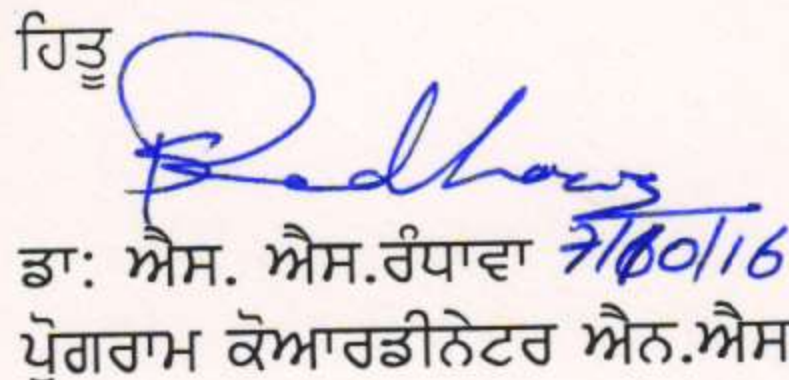 ਹਿਤੂ
Radhawa
ਡਾ: ਐਸ. ਐਸ.ਰੰਧਾਵਾ 7/10/16
ਪ੍ਰੋਗਰਾਮ ਕੋਆਰਡੀਨੇਟਰ ਐਨ.ਐਸ